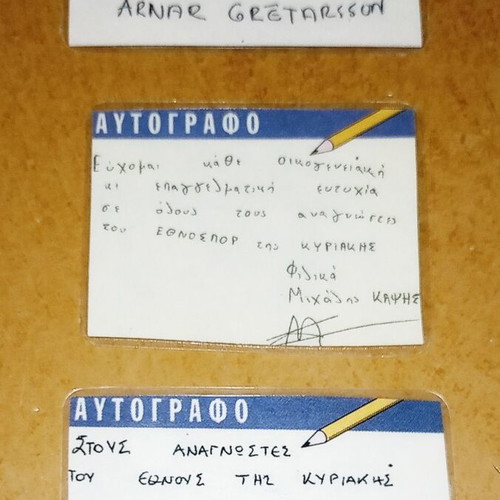 ARNAR GRÉTARSSON
ΑΥΤΟΓΡΑΦΟ
Εύχομαι κάθε οικογενειακή
κι επαγγελματική ευτυχία
σε όλους τους αναγνώστες
του ΕΘΝΟΣΠΟΡ της ΚΥΡΙΑΚΗΣ
Φιλικά
Μιχάλης ΚΑΨΗΣ
ΑΥΤΟΓΡΑΦΟ
ΣΤΟΥΣ ΑΝΑΓΝΩΣΤΕΣ
ΤΟΥ ΕΘΝΟΥΣ ΤΗΣ ΚΥΡΙΑΚΗΣ